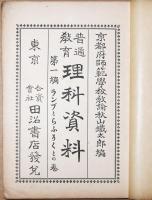 京都府師範學校教諭秋山鐵太郎編
普通
教育
理科資料
第一編 ランプとらふそくとの巻
東京
合資
會社
田沼書店發兌